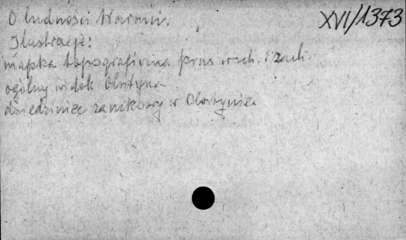 O ludności Warmii.
XVI/1373
Ilustracje:
mapka topograficzna prus wsch. i zach.
ogólny widok Olsztyna
dziedziniec zamkowy w Olsztynie